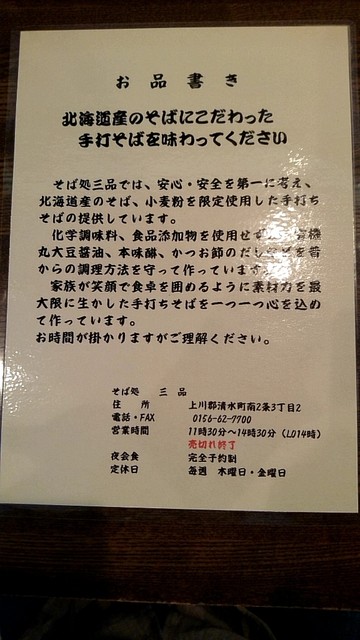 お品書き
北海道産のそばにこだわった
手打そばを味わってください
そば処三品では、安心・安全を第一に考え、
北海道産のそば、小麦粉を限定使用した手打ち
そばの提供しています。
化学調味料、食品添加物を使用せず、有機
丸大豆醤油、本味醂、かつお節のだしなどを昔
からの調理方法を守って作っています。
家族が笑顔で食卓を囲めるように素材力を最
大限に生かした手打ちそばを一つ一つ心を込め
て作っています。
お時間が掛かりますがご理解ください。
そば処 三品
住所 上川郡清水町南2条3丁目2
電話・FAX 0156-62-7700
営業時間 11時30分～14時30分（LO14時）
売切れ終了
夜会食 完全予約制
定休日 毎週 木曜日・金曜日